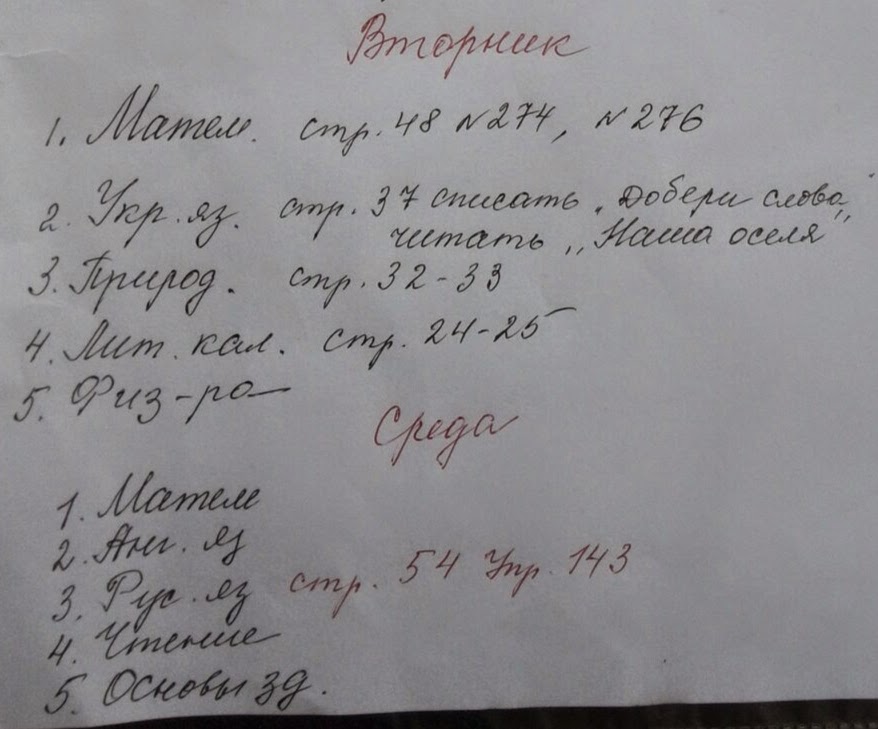 Вторник
1. Матем. стр. 48 N274, N276
2. Укр. яз. стр. 37 списать „Добери слова„
читать „Наша оселя"
3. Природ. стр. 32-33
4. Лит. кал. стр. 24-25
5. Физ-ра
Среда
1. Матем
2. Анг. яз
3. Рус. яз стр. 54 Упр. 143
4. Чтение
5. Основы зд.